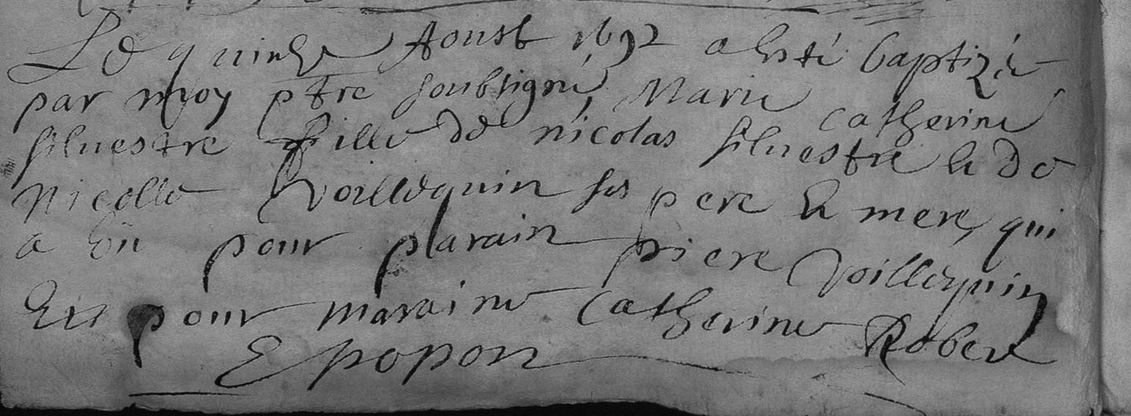 Le quinze Aoust 1692 a esté baptizée
par moy ptre soubsigné, Marie Catherine
silvestre fille de nicolas silvestre et de
Nicolle Voillequin ses pere et mere, qui
a eu pour parain piere Voillequin
Et pour maraine Catherine Rober
E popon